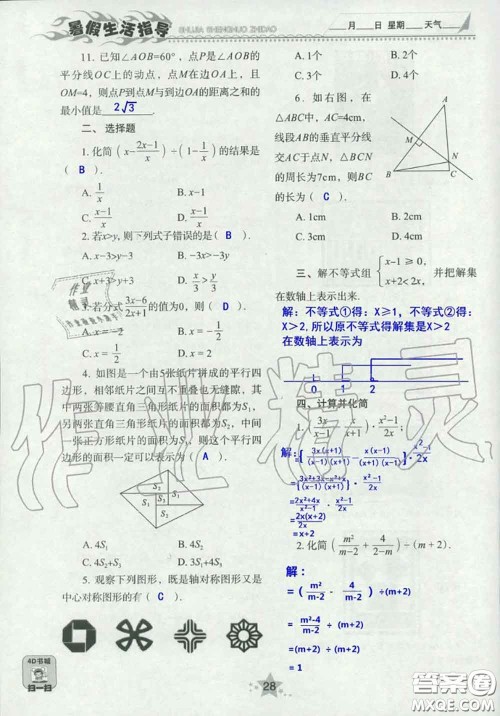 暑假生活指导
SHUJIA SHENGHUO ZHIDAO
月 日 星期 天气
11. 已知∠AOB=60°，点P是∠AOB的
平分线OC上的动点，点M在边OA上，且
OM=4，则点P到点M与到边OA的距离之和的
最小值是 2√3 .
二、选择题
1. 化简 (x-(2x-1)/x)÷(1-1/x) 的结果是
( B ).
A. 1/x B. x-1
C. (x-1)/x D. x/(x-1)
2. 若x>y, 则下列式子错误的是( B ).
A. x-3>y-3 B. -3x>-3y
C. x+3>y+3 D. x/3>y/3
3. 若分式(3x-6)/(2x+1)的值为0，则( )
A. x=-2 B. x=-1/2
C. x=1/2 D. x=2
4. 如图是一个由5张纸片拼成的平行四
边形，相邻纸片之间互不重叠也无缝隙，其
中两张等腰直角三角形纸片的面积都为S₁，
另两张直角三角形纸片的面积都为S₂，中间
一张正方形纸片的面积为S₃，则这个平行四
边形的面积一定可以表示为( A ).
S₂
S₁ S₃ S₁
S₂
A. 4S₁ B. 4S₂
C. 4S₂+S₃ D. 3S₁+4S₃
5. 观察下列图形，既是轴对称图形又是
中心对称图形的有( C ).
A. 1个 B. 2个
C. 3个 D. 4个
6. 如右图，在
△ABC中，AC=4cm，
线段AB的垂直平分线
交AC于点N，△BCN
的周长为7cm，则BC
的长为( C ).
A
N
B C
A. 1cm B. 2cm
C. 3cm D. 4cm
三、解不等式组 {x-1≥0, x+2<2x, 并把解集
在数轴上表示出来.
解：不等式①得：X≥1，不等式②得：
X>2,所以原不等式得解集是X>2
在数轴上表示为
0 1 2
四、计算并化简
1. (3x/(x-1)-x/(x+1))·(x²-1)/2x;
解：
=[3x(x+1)/(x+1)(x-1)-x(x-1)/(x-1)(x+1)]·(x²-1)/2x
=[(3x²+3x-x²+x)/(x-1)(x+1)]·(x²-1)/2x
=(2x²+4x)/(x²-1)·(x²-1)/2x
=2x(x+2)/2x
=x+2
2. 化简(m²/(m-2)+4/(2-m))÷(m+2).
解：
=(m²/(m-2)-4/(m-2))÷(m+2)
=(m²-4)/(m-2)÷(m+2)
=(m+2)÷(m+2)
=1
4D书城
扫一扫
28
作业精灵
答案圈
MXQE.COM